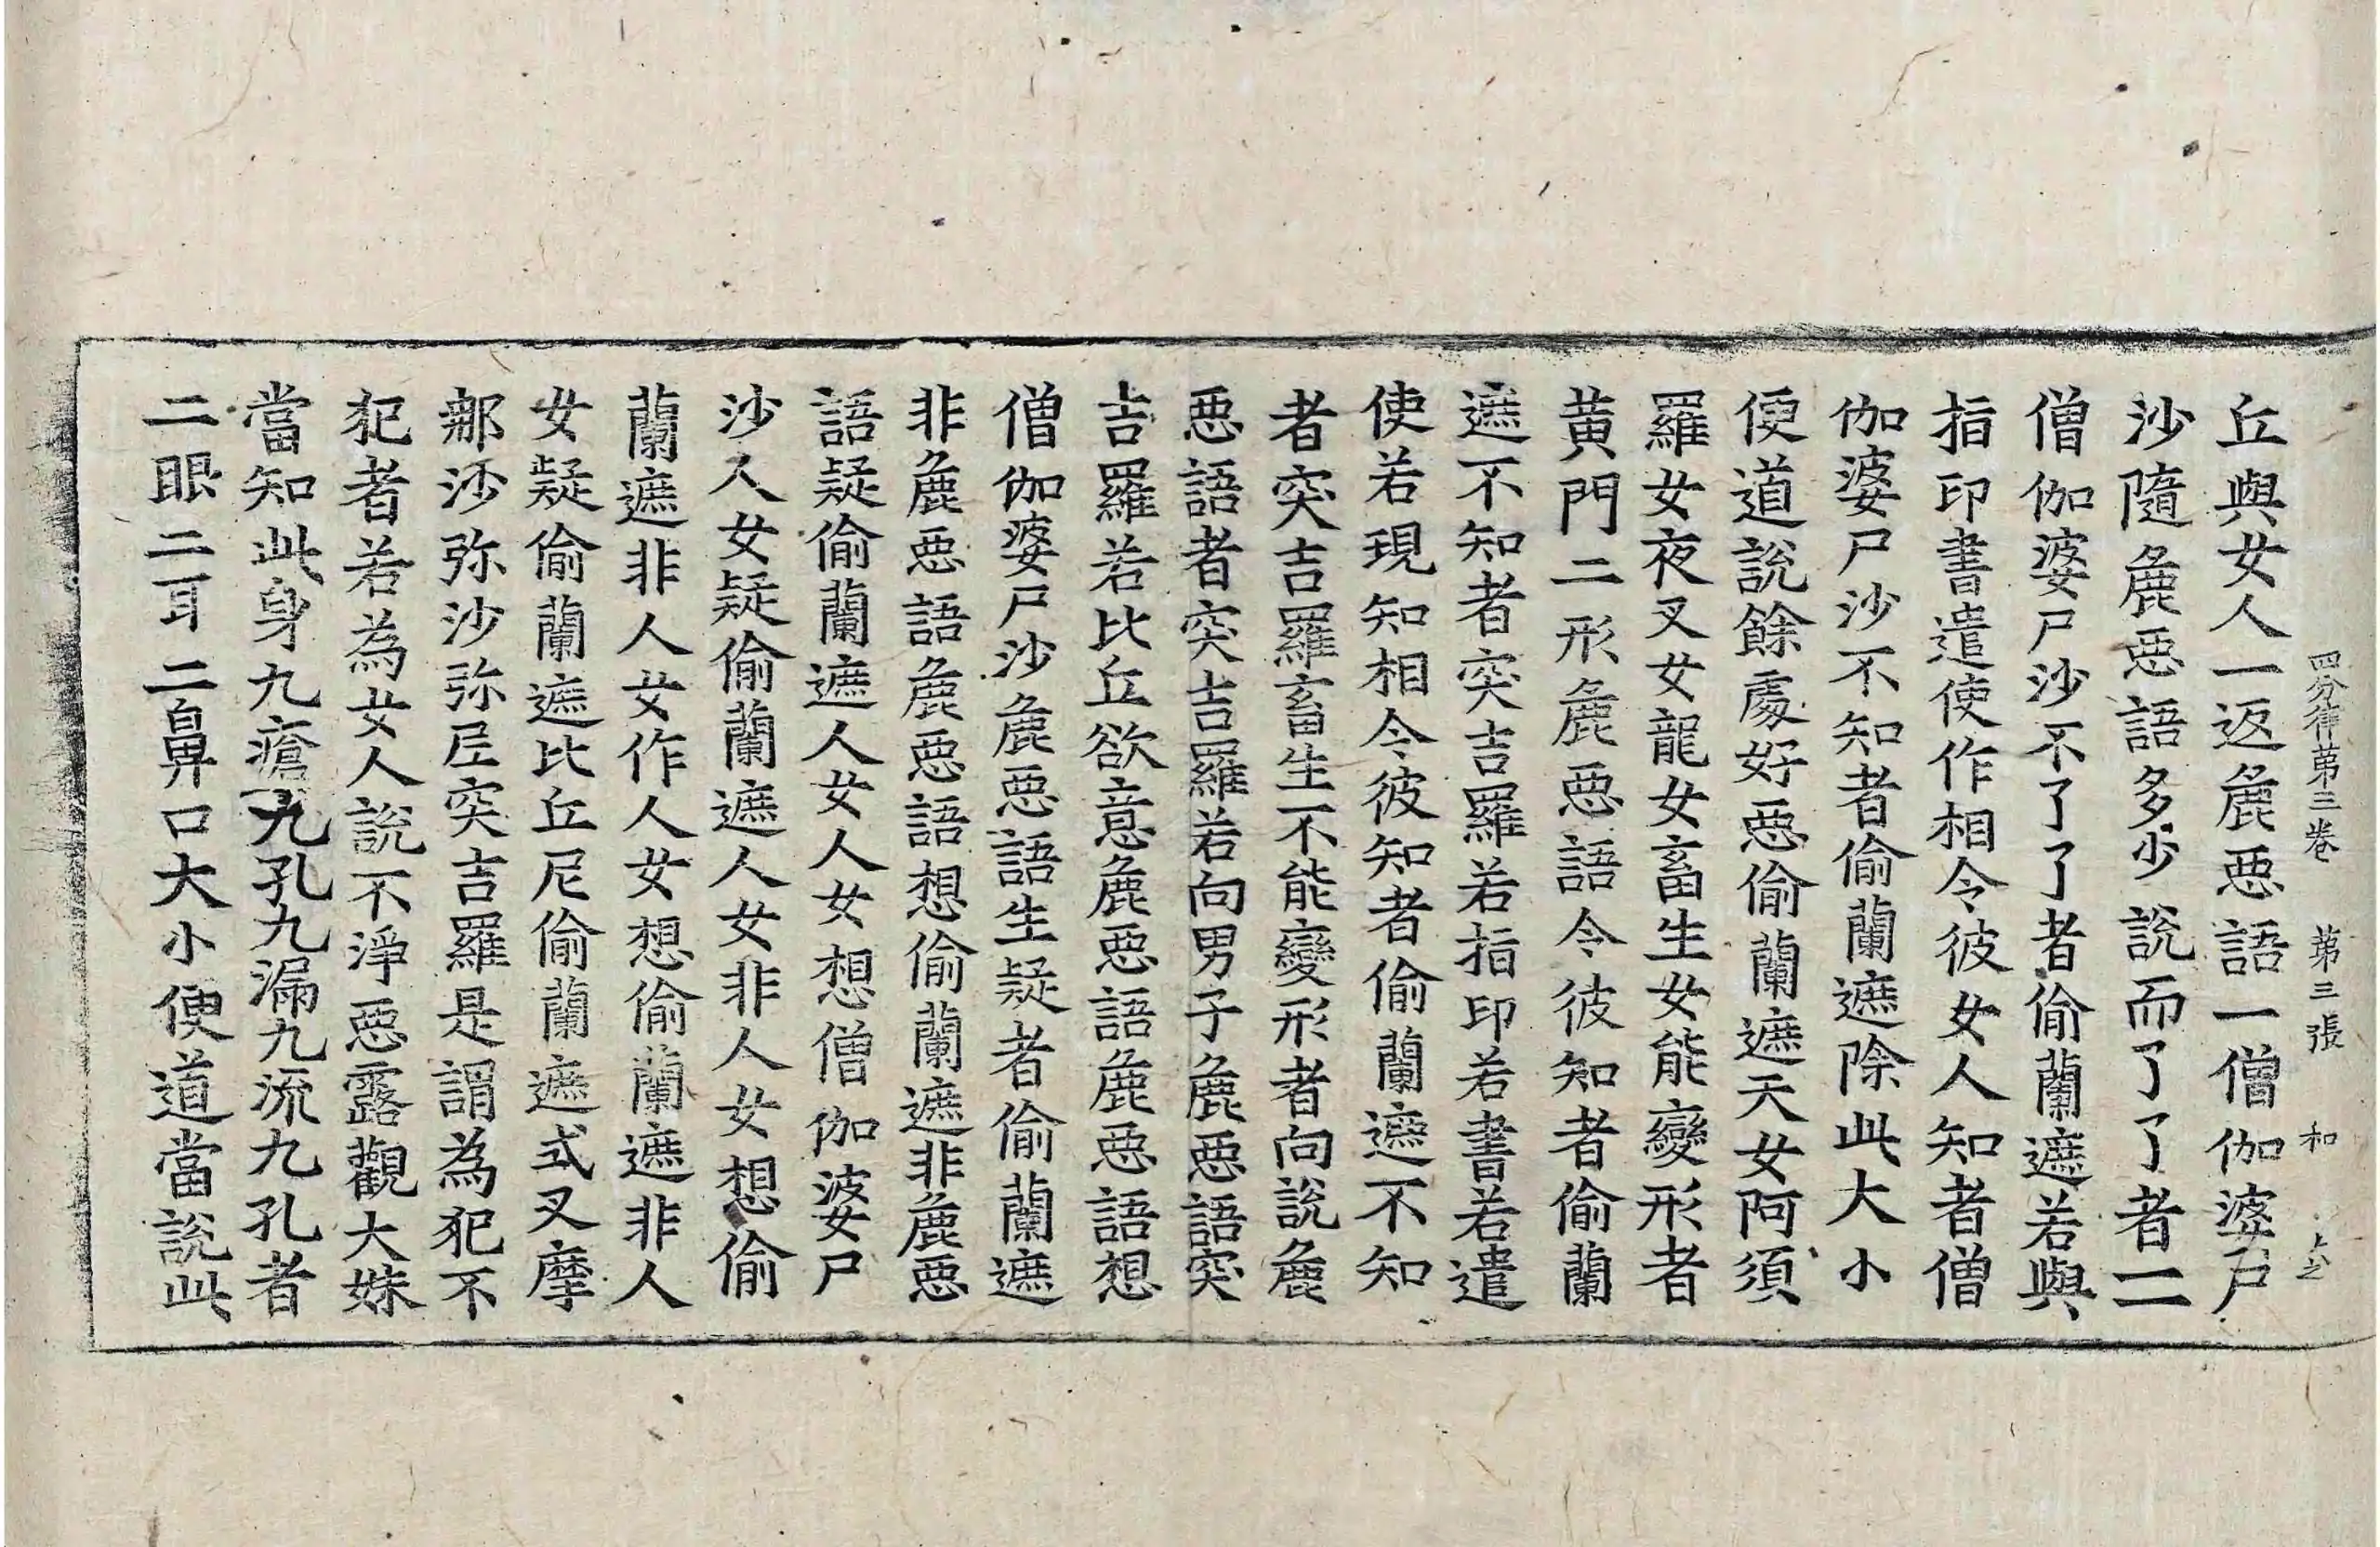 四分律苐三卷 苐三張 和
丘與女人一返麁惡語一僧伽婆尸
沙隨麁惡語多少說而了了者一一
僧伽婆尸沙不了了者偷蘭遮若與
指印書遣使作相令彼女人知者僧
伽婆尸沙不知者偷蘭遮除此大小
便道說餘處好惡偷蘭遮天女阿須
羅女夜叉女龍女畜生女能變形者
黃門二形麁惡語令彼知者偷蘭
遮不知者突吉羅若指印若書若遣
使若現知相令彼知者偷蘭遮不知
者突吉羅畜生不能變形者向說麁
惡語者突吉羅若向男子麁惡語突
吉羅若比丘欲意麁惡語麁惡語想
僧伽婆尸沙麁惡語生疑者偷蘭遮
非麁惡語麁惡語想偷蘭遮非麁惡
語疑偷蘭遮人女人女想僧伽婆尸
沙人女疑偷蘭遮人女非人女想偷
蘭遮非人女作人女想偷蘭遮非人
女疑偷蘭遮比丘尼偷蘭遮式叉摩
那沙弥沙弥尼突吉羅是謂為犯不
犯者若為女人說不淨惡露觀大姊
當知此身九瘡九孔九漏九流九孔者
二眼二耳二鼻口大小便道當說此